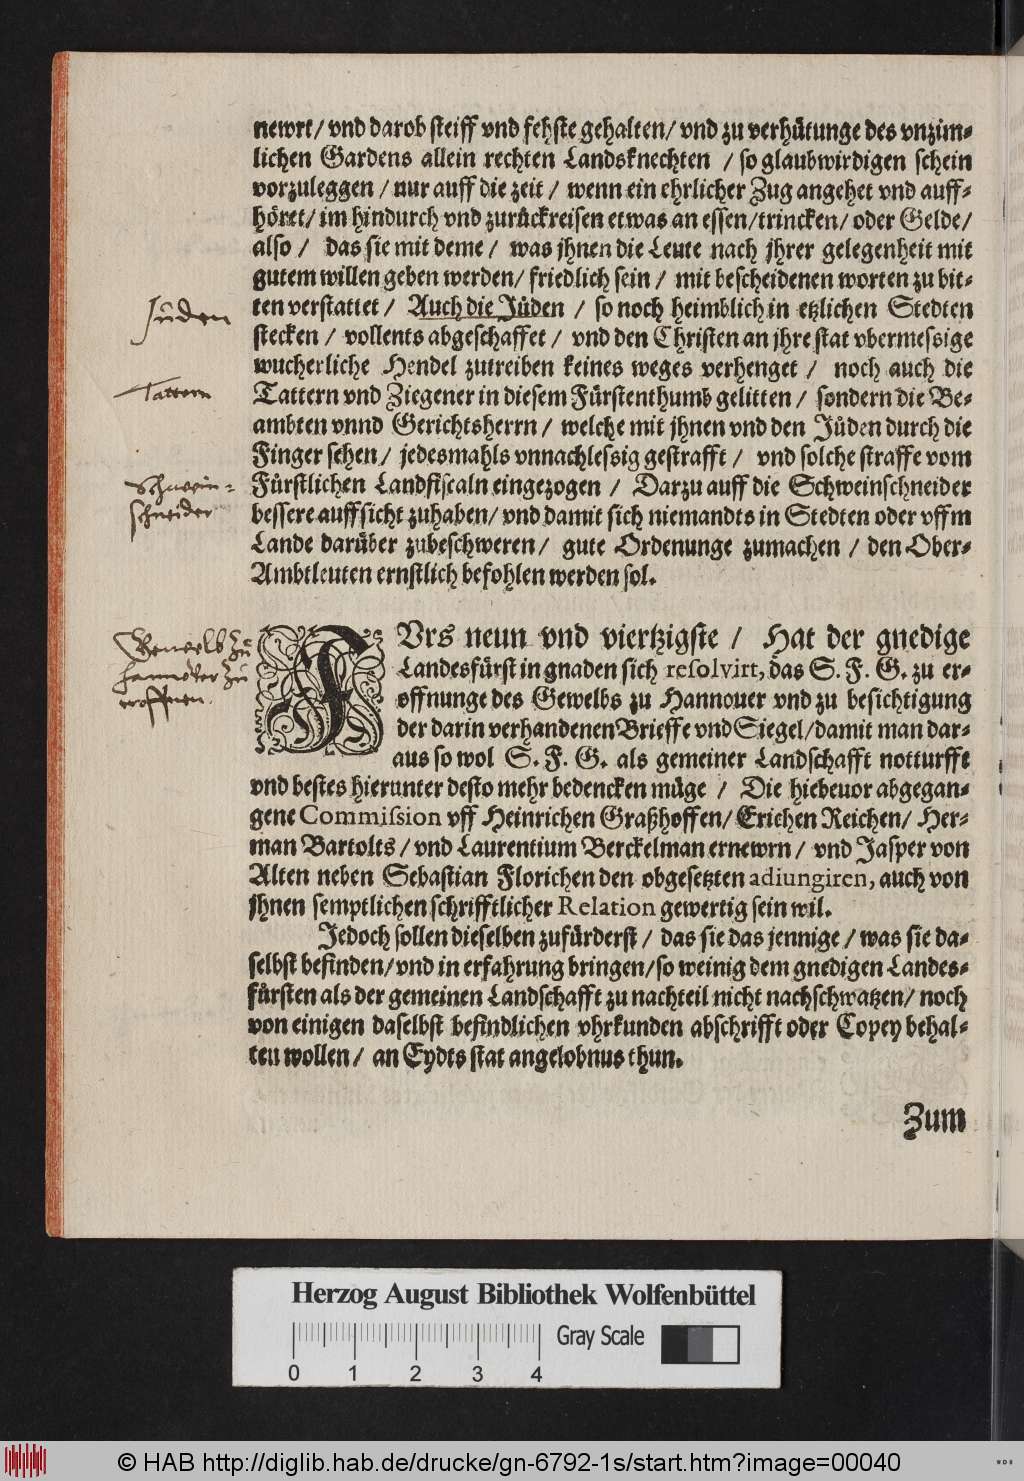 newrt / vnd darob steiff vnd fehste gehalten / vnd zu verhütunge des vnzim-
lichen Gardens allein rechten Landsknechten / so glaubwirdigen schein
vorzuleggen / nur auff die zeit / wenn ein ehrlicher Zug angehet vnd auff-
höret / im hindurch vnd zurückreisen etwas an essen / trincken / oder Gelde /
also / das sie mit deme / was jhnen die Leute nach jhrer gelegenheit mit
gutem willen geben werden / friedlich sein / mit bescheidenen worten zu bit-
Jüden
ten verstattet / Auch die Jüden / so noch heimblich in etzlichen Stedten
stecken / vollents abgeschaffet / vnd den Christen an jhre stat vbermessige
wucherliche Hendel zutreiben keines weges verhenget / noch auch die
Tattern
Tattern vnd Ziegener in diesem Fürstenthumb gelitten / sondern die Be-
ambten vnnd Gerichtsherrn / welche mit jhnen vnd den Jüden durch die
Finger sehen / jedesmahls vnnachlessig gestrafft / vnd solche straffe vom
Schwein-
schneider
Fürstlichen Landfiscaln eingezogen / Darzu auff die Schweinschneider
bessere auffsicht zuhaben / vnd damit sich niemandts in Stedten oder vffm
Lande darüber zubeschweren / gute Ordenunge zumachen / den Ober-
Ambtleuten ernstlich befohlen werden sol.
Gewelb zu
Hannover zu
eröffnen.
FVrs neun vnd viertzigste / Hat der gnedige
Landesfürst in gnaden sich resolvirt, das S. F. G. zu er-
offnunge des Gewelbs zu Hannouer vnd zu besichtigung
der darin verhandenen Brieffe vnd Siegel / damit man dar-
aus so wol S. F. G. als gemeiner Landschafft notturfft
vnd bestes hierunter desto mehr bedencken müge / Die hiebeuor abgegan-
gene Commission vff Heinrichen Graßhoffen / Erichen Reichen / Her-
man Bartolts / vnd Laurentium Berckelman ernewrn / vnd Jasper von
Alten neben Sebastian Florichen den obgesetzten adiungiren, auch von
jhnen semptlichen schrifftlicher Relation gewertig sein wil.
Jedoch sollen dieselben zufürderst / das sie das jennige / was sie da-
selbst befinden / vnd in erfahrung bringen / so weinig dem gnedigen Landes-
fürsten als der gemeinen Landschafft zu nachteil nicht nachschwatzen / noch
von einigen daselbst befindlichen vhrkunden abschrifft oder Copey behal-
ten wollen / an Eydts stat angelobnus thun.
Zum
Herzog August Bibliothek Wolfenbüttel
Gray Scale
0 1 2 3 4
© HAB http://diglib.hab.de/drucke/gn-6792-1s/start.htm?image=00040